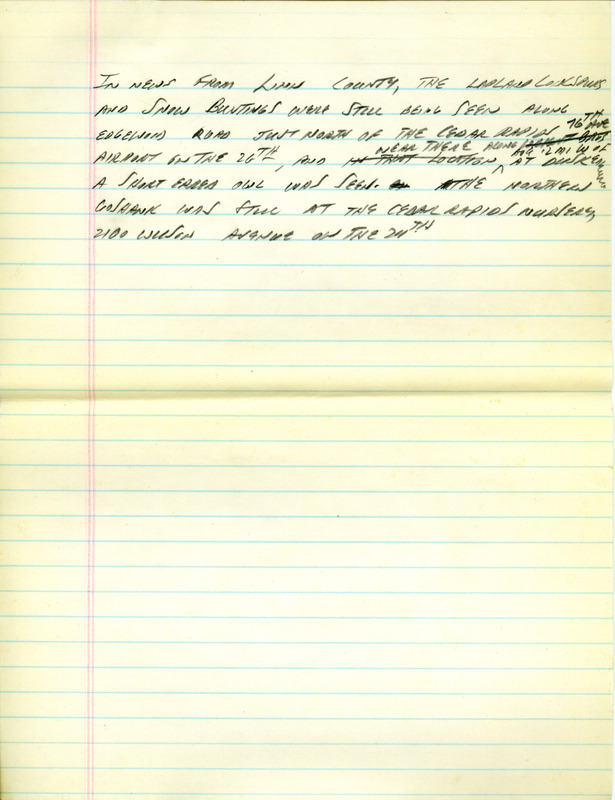 IN NEWS FROM LINN COUNTY, THE LAPLAND LONGSPURS
AND SNOW BUNTINGS WERE STILL BEING SEEN ALONG
EDGEWOOD ROAD JUST NORTH OF THE CEDAR RAPIDS
AIRPORT ON THE 26TH, AND NEAR THERE ALONG 76TH AVE .2 MI W OF AT DUSK
A SHORT EARED OWL WAS SEEN. THE NORTHERN
GOSHAWK WAS STILL AT THE CEDAR RAPIDS NURSERY,
2100 WILSON AVENUE ON THE 24TH